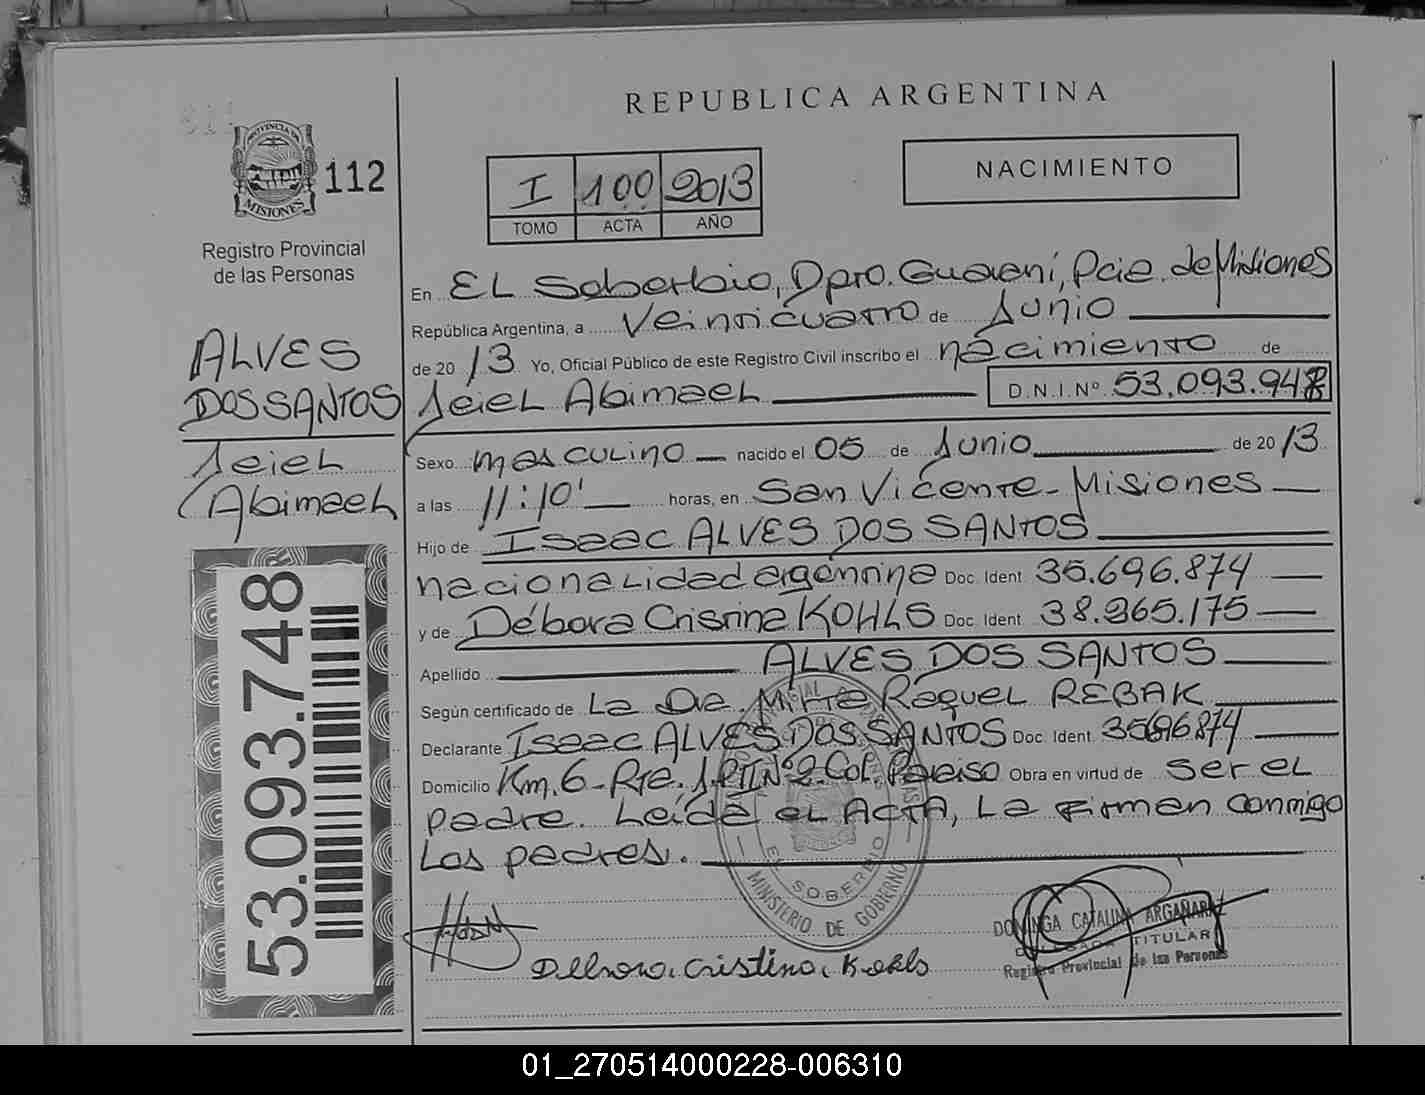 REPUBLICA ARGENTINA
112
MISIONES
Registro Provincial
de las Personas
I 100 2013
TOMO ACTA AÑO
NACIMIENTO
ALVES
DOS SANTOS
Jeiel
Abimael
53.093.748
En El Soberbio, Dpto. Guaraní, Pcia. de Misiones
República Argentina, a Veinticuatro de Junio
de 2013 Yo, Oficial Público de este Registro Civil inscribo el nacimiento de
Jeiel Abimael D.N.I.Nº 53.093.948
Sexo masculino nacido el 05 de Junio de 2013
a las 11:10' horas, en San Vicente - Misiones
Hijo de Isaac ALVES DOS SANTOS
nacionalidad argentina Doc. Ident. 35.696.874
y de Débora Cristina KOHLS Doc. Ident. 38.965.175
Apellido ALVES DOS SANTOS
Según certificado de La Dra. Mirta Raquel REBAK
Declarante Isaac ALVES DOS SANTOS Doc. Ident. 35696874
Domicilio Km. 6 - Rta. Nº 2 - Col. Paraiso Obra en virtud de ser el
padre. Leída el ACTA, La firman conmigo
Los padres.
EL SOBERBIO
MINISTERIO DE GOBIERNO
Débora Cristina Kohls
DOMINGA CATALINA ARGAÑARAZ
DELEGADA TITULAR
Registro Provincial de las Personas
01_270514000228-006310